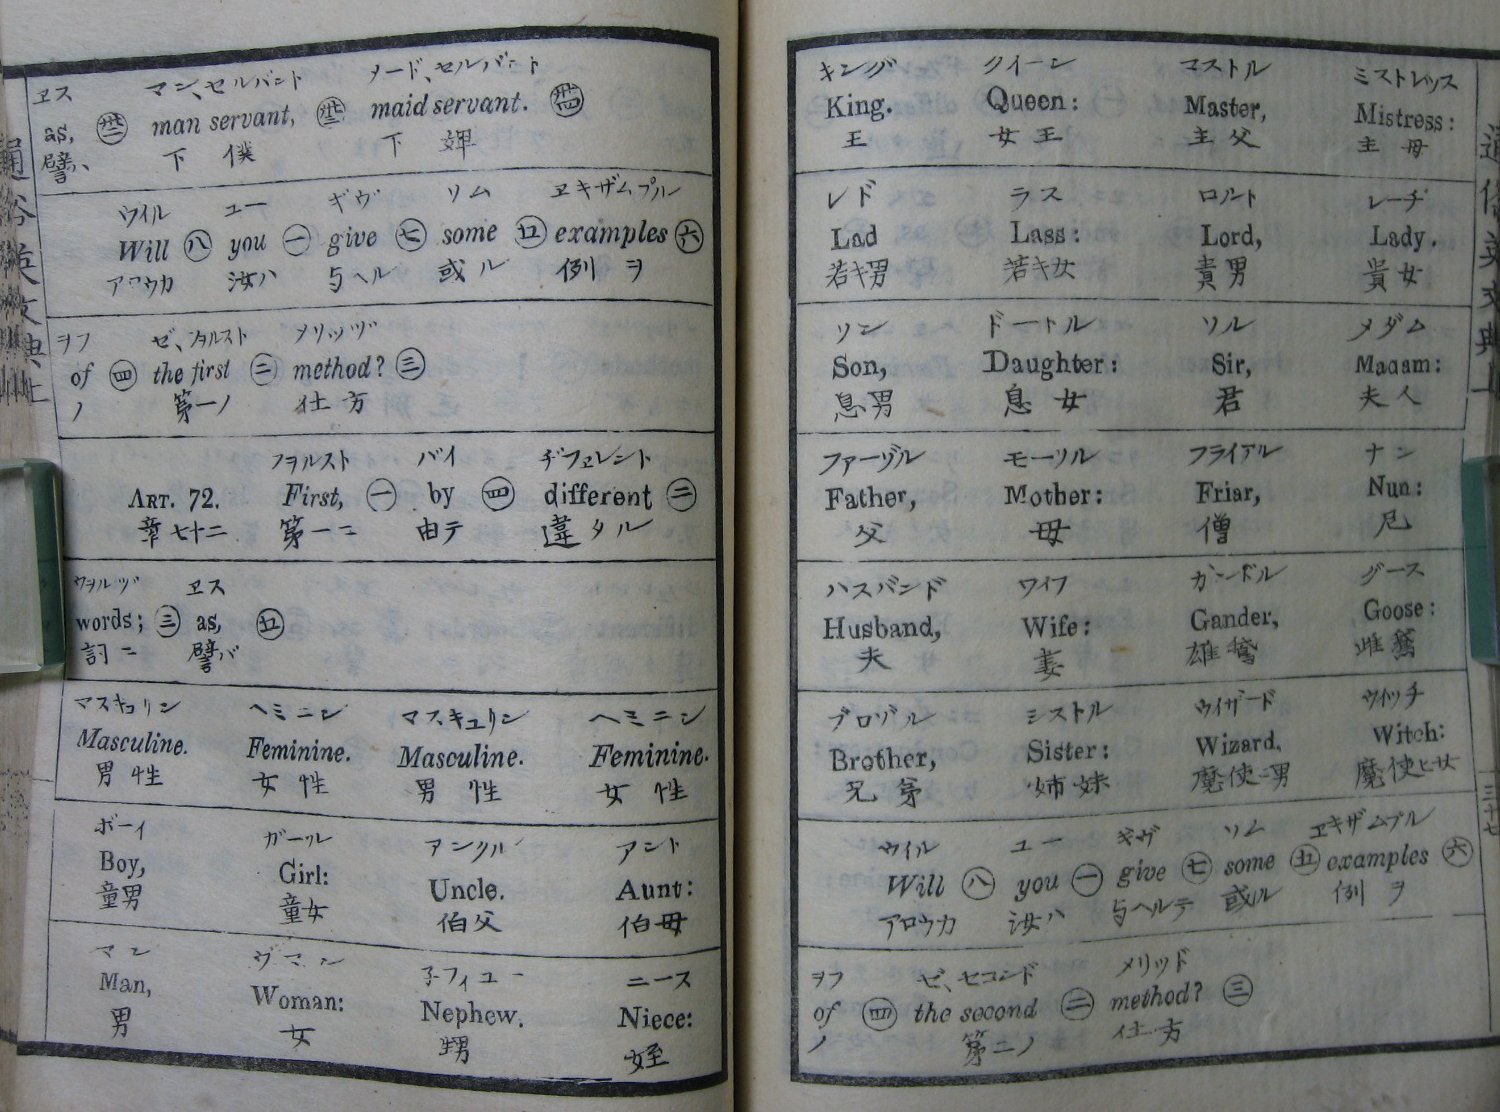 ヱス マン、セルバント メード、セルバント
as, 卅二 man servant, 卅三 maid servant. 卅四
譬、 下僕 下婢
ウイル ユー ギヴ ソム ヱキザムプル
Will 八 you 一 give 七 some 五 examples 六
アロウカ 汝ハ 与ヘル 或ル 例ヲ
ヲフ ゼ、フヲルスト メリッヅ
of 四 the first 二 method? 三
ノ 第一ノ 仕方
フヲルスト バイ ヂフェレント
ART. 72. First, 一 by 四 different 二
章七十二 第一ニ 由テ 違タル
ウヲルヅ ヱス
words; 三 as, 五
詞ニ 譬バ
マスキュリン ヘミニン マスキュリン ヘミニン
Masculine. Feminine. Masculine. Feminine.
男性 女性 男性 女性
ボーイ ガール アンクル アント
Boy, Girl: Uncle. Aunt:
童男 童女 伯父 伯母
マン ヴマン 子フィユー ニース
Man, Woman: Nephew. Niece:
男 女 甥 姪
通俗英文典上
キング クイーン マストル ミストレッス
King. Queen: Master, Mistress:
王 女王 主父 主母
レド ラス ロルト レーヂ
Lad Lass: Lord, Lady.
若キ男 若キ女 貴男 貴女
ソン ドートル ソル メダム
Son, Daughter: Sir, Madam:
息男 息女 君 夫人
ファーゾル モーソル フライアル ナン
Father, Mother: Friar, Nun:
父 母 僧 尼
ハスバンド ワイフ ガンドル グース
Husband, Wife: Gander, Goose:
夫 妻 雄鵞 雌鵞
ブロゾル シストル ウイザード ウイッチ
Brother, Sister: Wizard. Witch:
兄弟 姉妹 魔使ヒ男 魔使ヒ女
ウイル ユー ギヴ ソム ヱキザムプル
Will 八 you 一 give 七 some 五 examples 六
アロウカ 汝ハ 与ヘルテ 或ル 例ヲ
ヲフ ゼ、セコンド メリッド
of 四 the second 二 method? 三
ノ 第二ノ 仕方
通俗英文典上
三十七